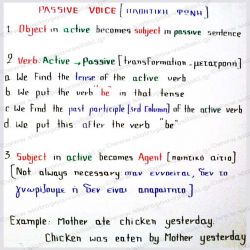 PASSIVE VOICE [ΠΑΘΗΤΙΚΗ ΦΩΝΗ]
1 Object in active becomes subject in passive sentence
2 Verb: Active → Passive [transformation - μετατροπή]
a We Find the tense of the active verb
b We put the verb "be" in that tense
c We Find the past participle [3rd Column] of the active verb
d. We put this after the verb "be"
3 Subject in active becomes Agent [ποιητικό αίτιο]
[Not always necessary: όταν εννοείται, δεν το
γνωρίζουμε ή δεν είναι απαραίτητο]
Example: Mother ate chicken yesterday.
Chicken was eaten by Mother yesterday